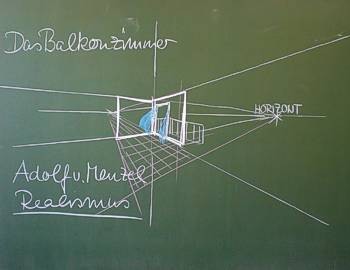 Das Balkonzimmer
HORIZONT
Adolf v. Menzel
Realismus